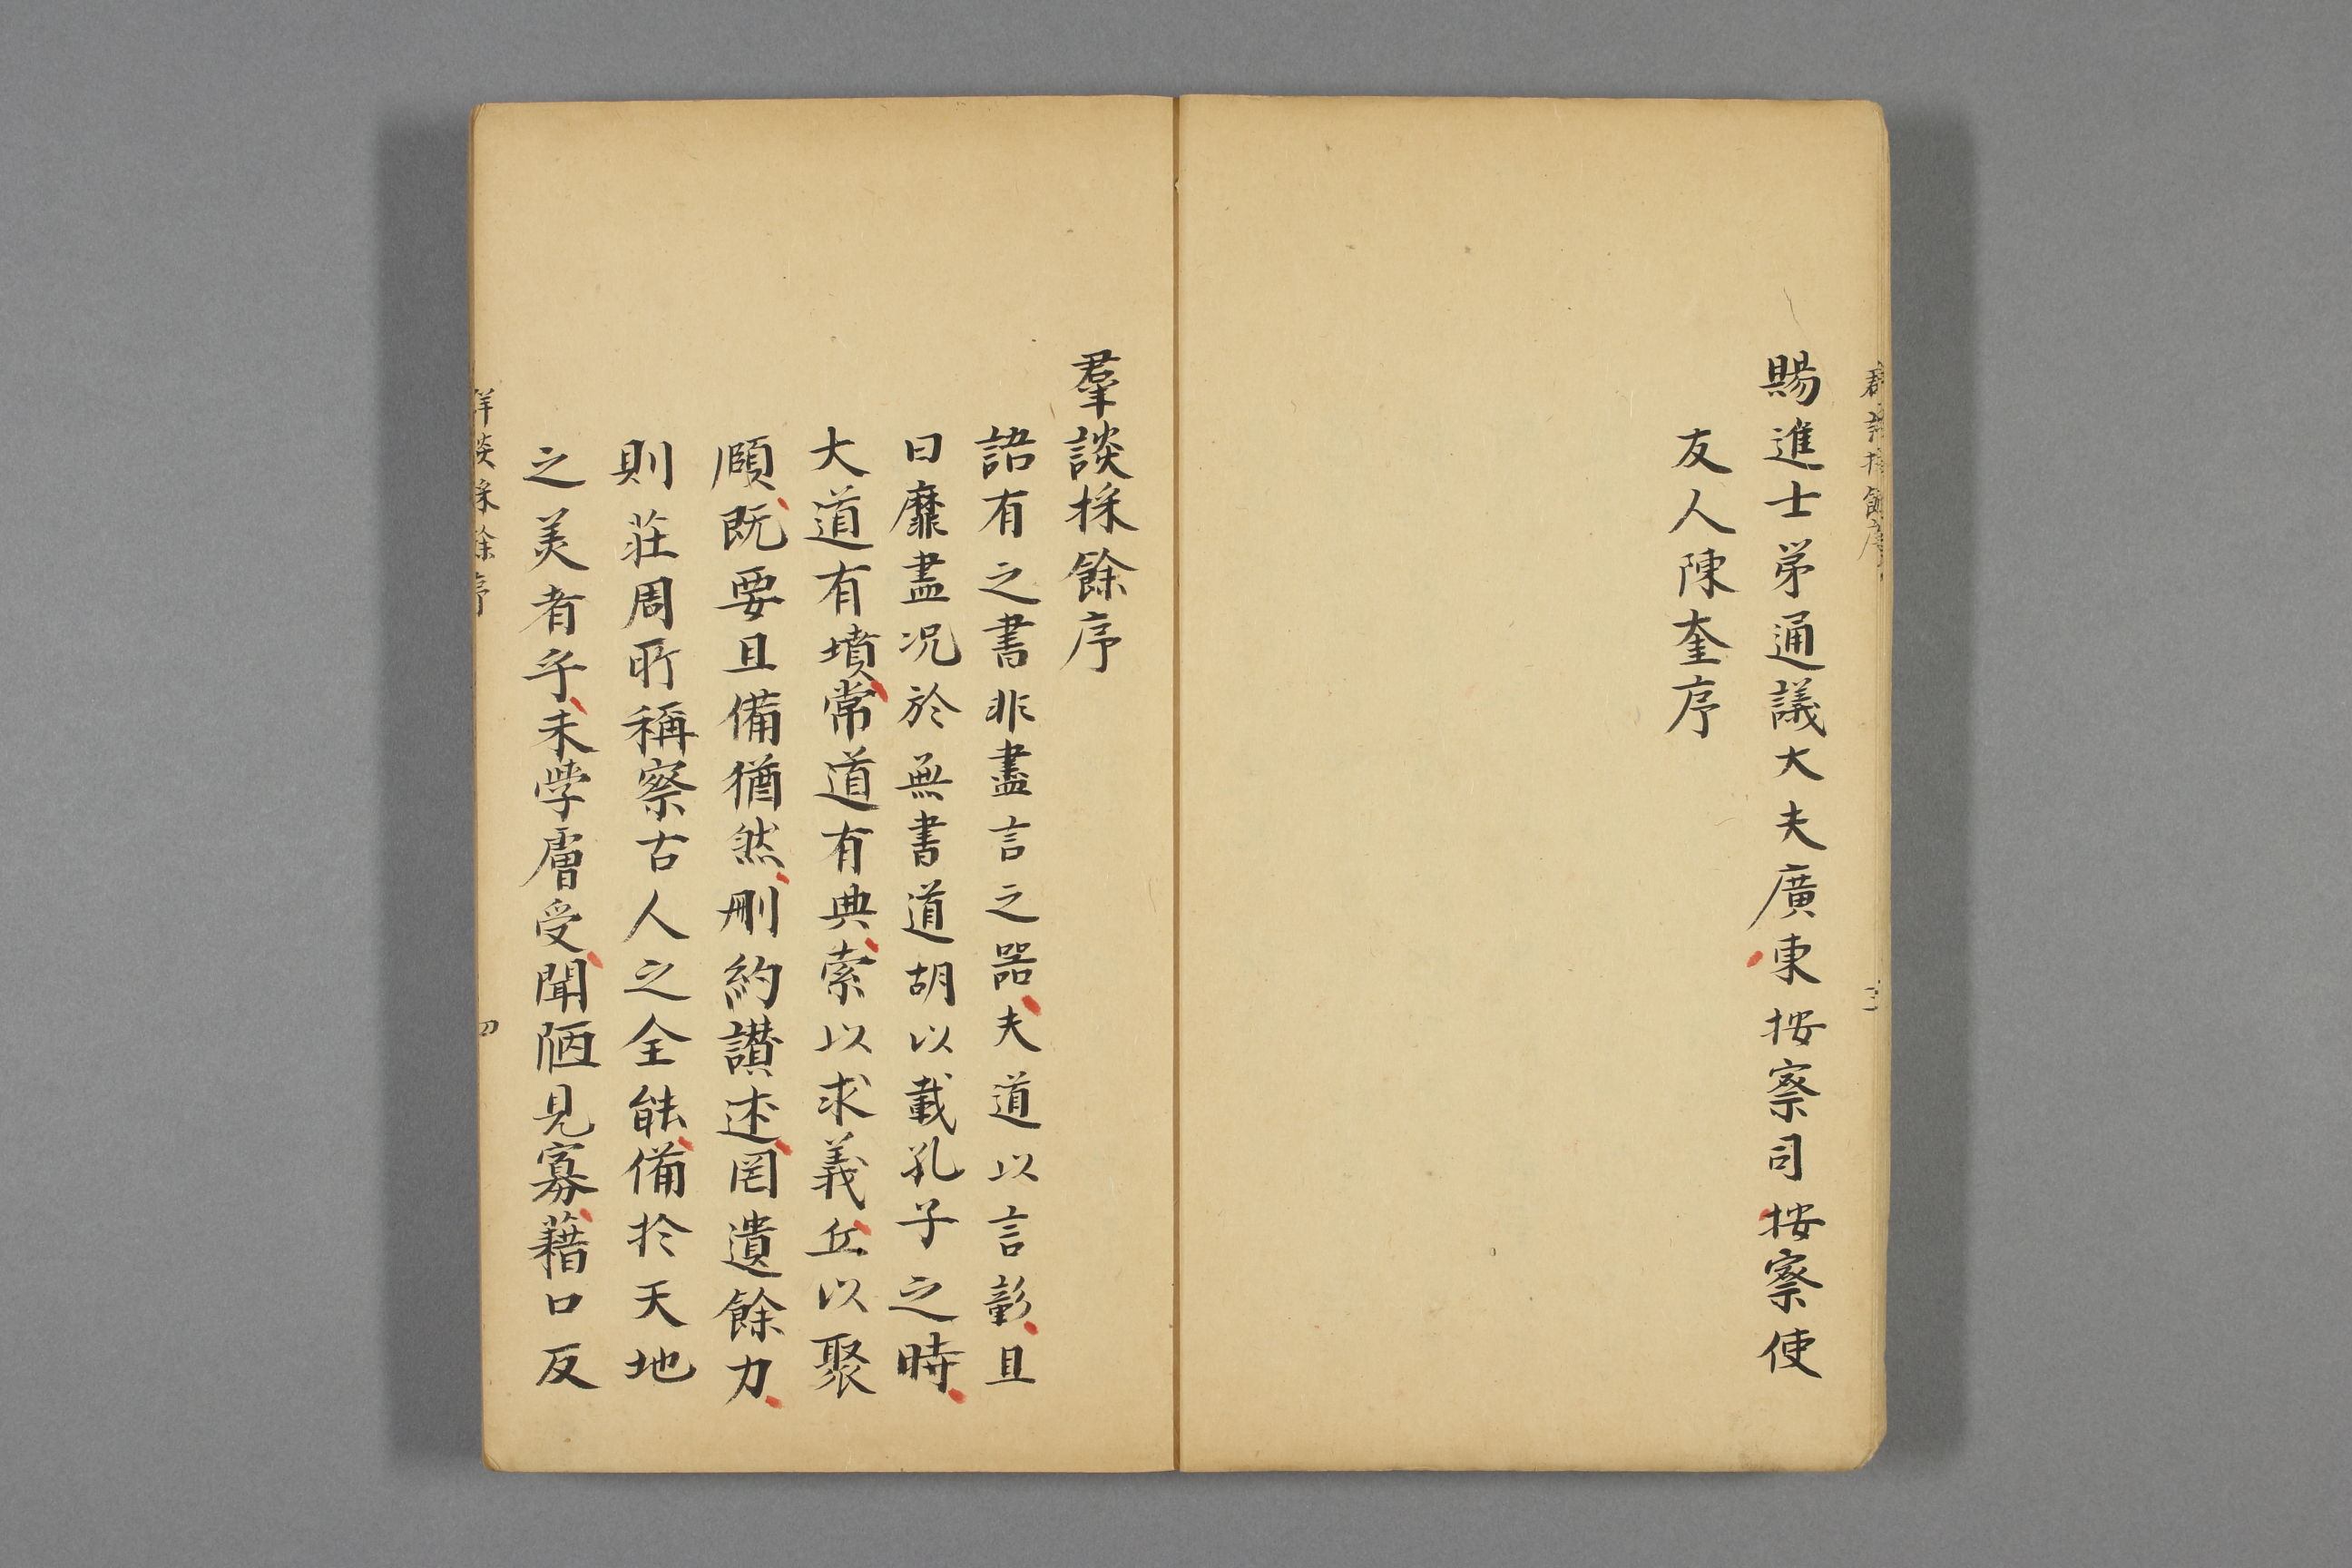 賜進士弟通議大夫廣東按察司按察使
友人陳奎序
羣談採餘序
語有之書非盡言之器夫道以言彰且
曰靡盡况於無書道胡以載孔子之時
大道有墳常道有典索以求義丘以聚
頤既要且備猶然刪約讃述罔遺餘力
則莊周所稱察古人之全能備於天地
之美者乎末學膚受聞陋見寡藉口反
四